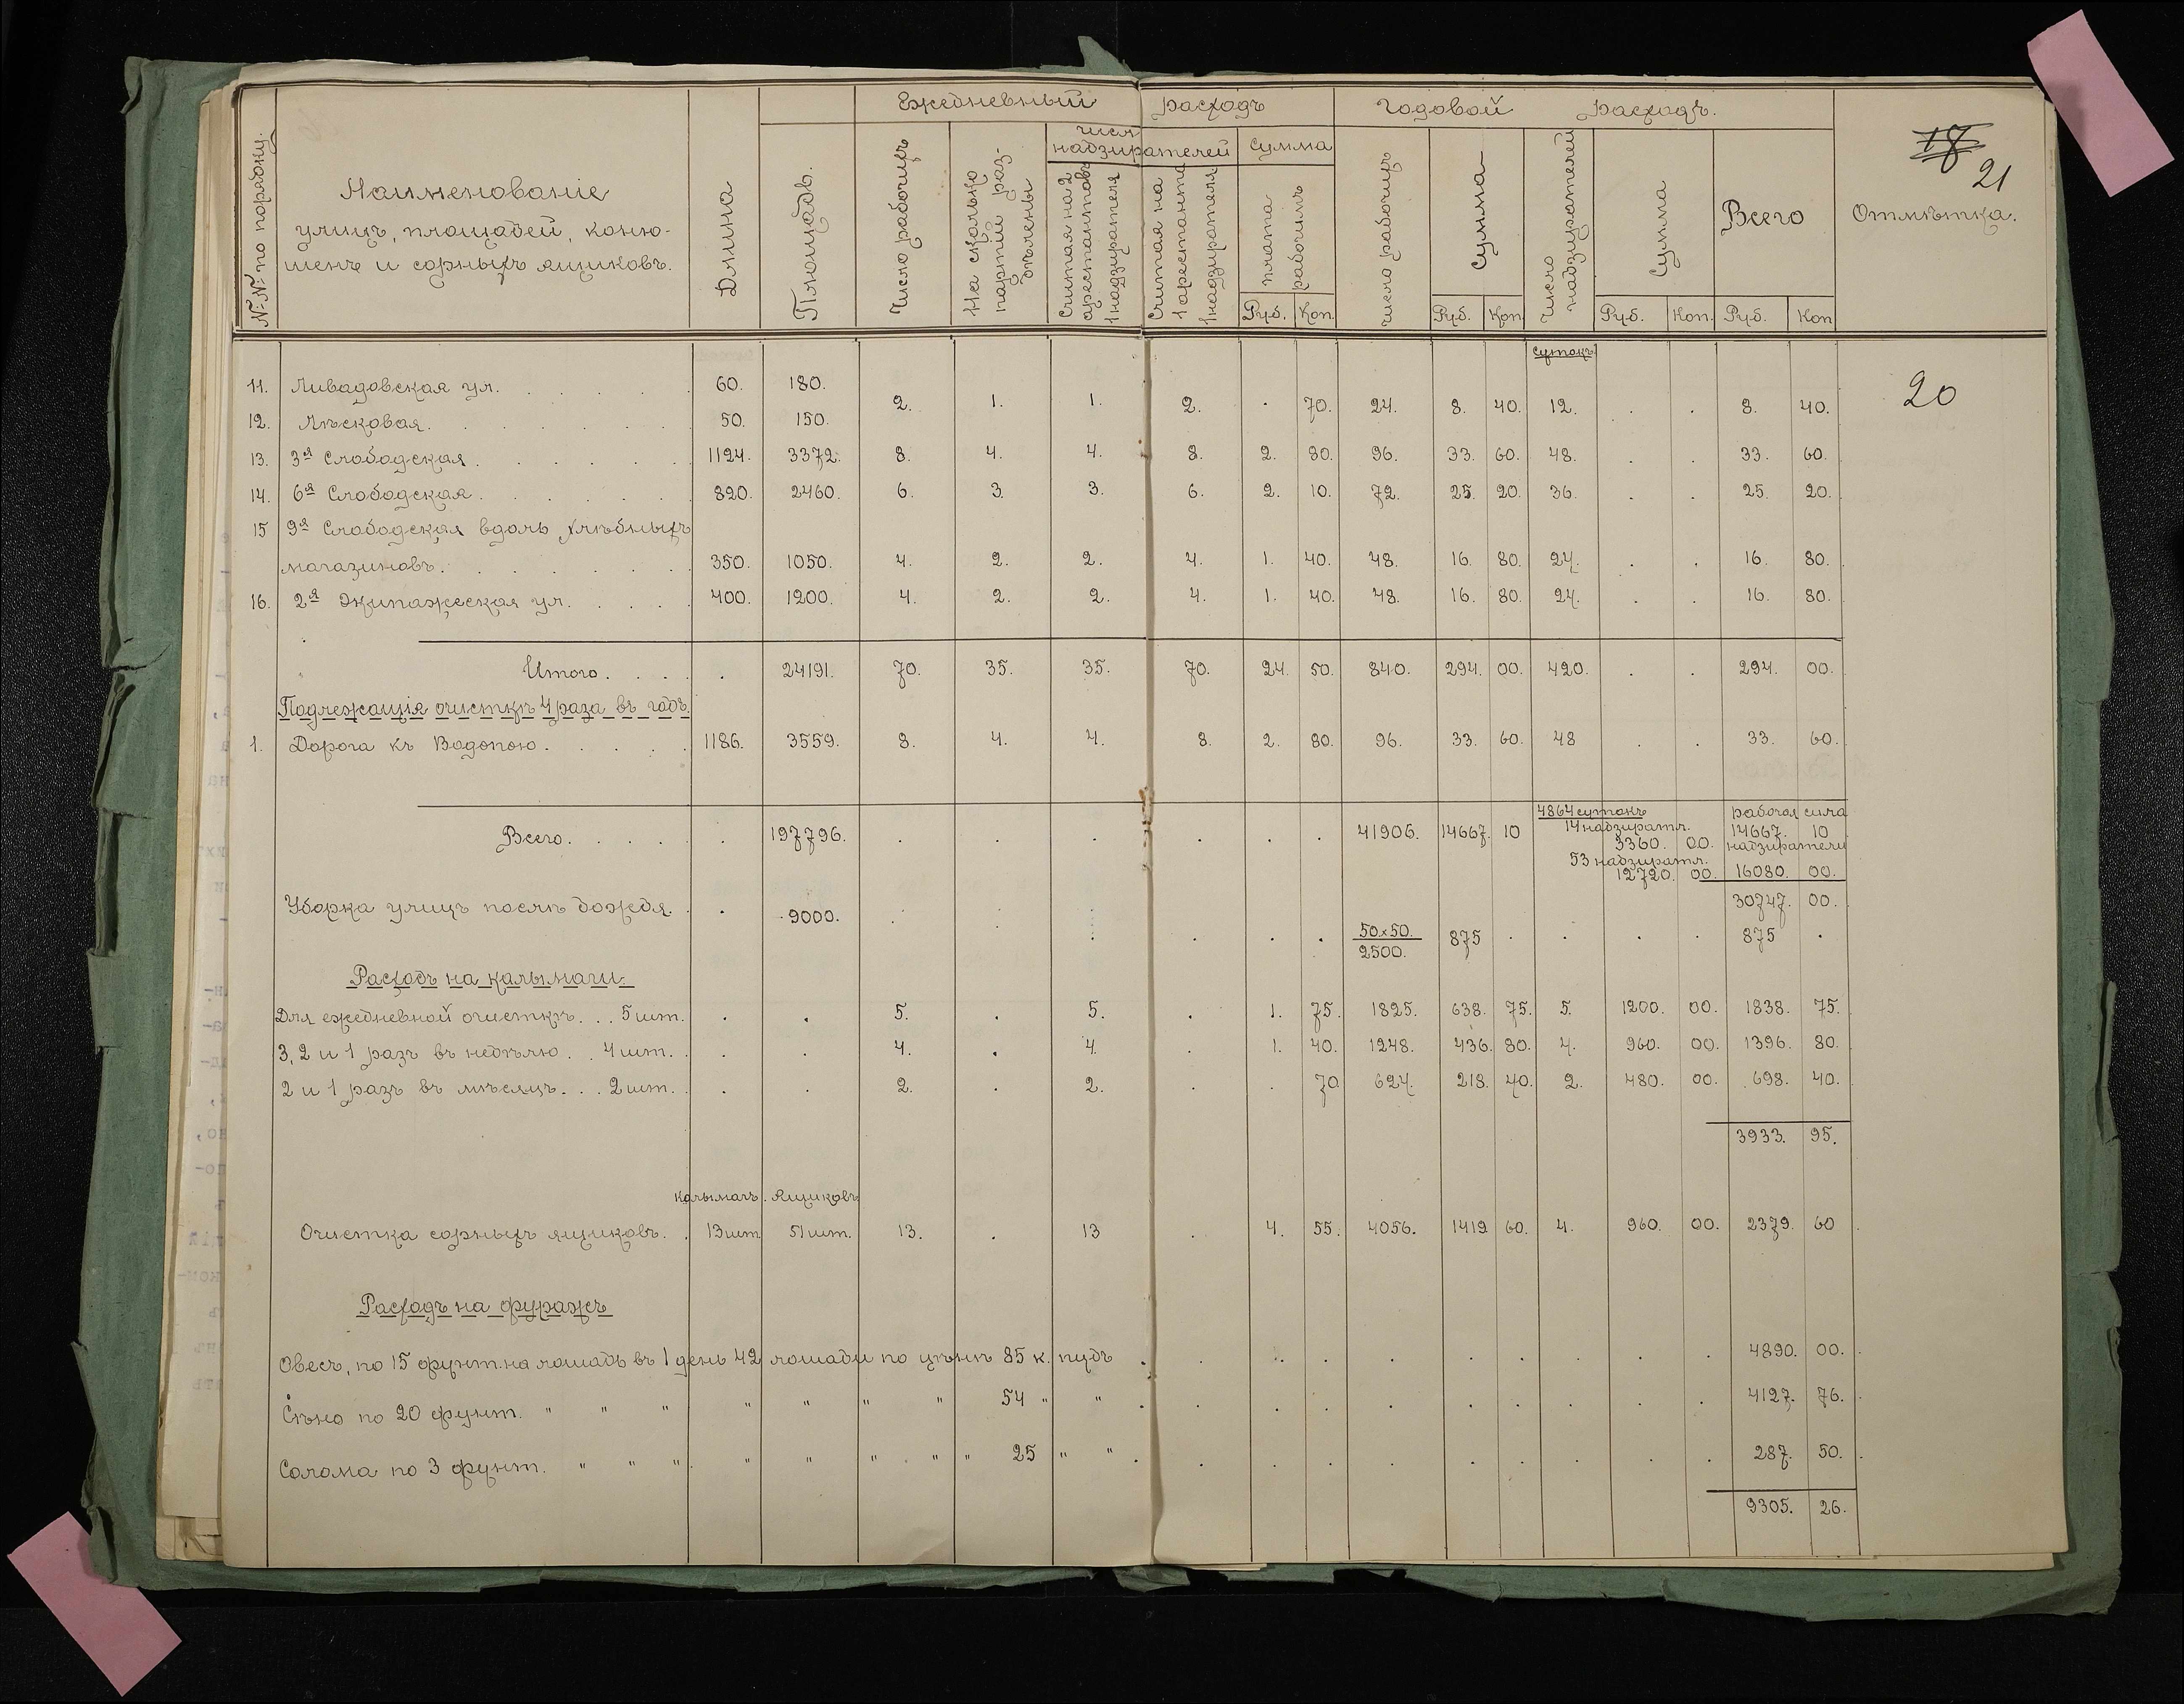 Ежедневный расходъ Годовой расходъ.
18
21
№№ по порядку.
Наименованіе
улицъ, площадей, коню-
шенъ и сорныхъ ящиковъ.
Длина
Площадь.
Число рабочихъ
На сколько партій раз- дѣлены
число надзирателей
Считая на 2 арестантовъ 1 надзирателя
Считая на 1 арестанта 1 надзирателя
Сумма
плата рабочимъ
Руб. Коп.
число рабочихъ
Сумма
Руб. Коп.
Число надзирателей
Сумма
Руб. Коп.
Всего
Руб. Коп
Отмѣтка.
сутокъ
20
11. Ливадовская ул. 60. 180.
2. 1. 1. 2. 70. 24. 8. 40. 12. 8. 40.
12. Лѣсковая. 50. 150.
13. 3я Слободская. 1124. 3372. 8. 4. 4. 8. 2. 80. 96. 33. 60. 48. 33. 60.
14. 6я Слободская. 820. 2460. 6. 3. 3. 6. 2. 10. 72. 25. 20. 36. 25. 20.
15 9я Слободская вдоль хлѣбныхъ
магазиновъ. 350. 1050. 4. 2. 2. 4. 1. 40. 48. 16. 80. 24. 16. 80.
16. 2я Экипажеская ул. 400. 1200. 4. 2. 2. 4. 1. 40. 48. 16. 80. 24. 16. 80.
Итого. 24191. 70. 35. 35. 70. 24. 50. 840. 294. 00. 420. 294. 00.
Подлежащія очисткѣ 4 раза въ годъ.
1. Дорога къ Водопою. 1186. 3559. 8. 4. 4. 8. 2. 80. 96. 33. 60. 48 33. 60.
4864 сутокъ рабочая сила
Всего. 197796. 41906. 14667. 10 14 надзирател. 14667. 10
3360. 00. надзиратели
53 надзирател.
12720. 00. 16080. 00.
30747. 00.
Уборка улицъ послѣ дождя. 9000. 50х50. 875 875
2500.
Расходъ на калымаги.
Для ежедневной очистки. . . 5 шт. 5. 5. 1. 75. 1825. 638. 75. 5. 1200. 00. 1838. 75.
3, 2 и 1 разъ въ недѣлю. . 4 шт. 4. 4. 1. 40. 1248. 436. 80. 4. 960. 00. 1396. 80.
2 и 1 разъ въ мѣсяцъ. . . 2 шт. 2. 2. 70 624. 218. 40. 2. 480. 00. 698. 40.
3933. 95.
калымагъ. Ящиковъ
Очистка сорныхъ ящиковъ. 13 шт 51 шт. 13. 13 4. 55. 4056. 1419 60. 4. 960. 00. 2379. 60
Расходъ на фуражъ
Овесъ, по 15 фунт. на лошадь въ 1 день 42 лошади по цѣнѣ 85 к. пудъ 4890. 00.
Сѣно по 20 фунт. " " " " " " " 54 " " 4127. 76.
Солома по 3 фунт. " " " " " " " " 25 " " 287. 50.
9305. 26.